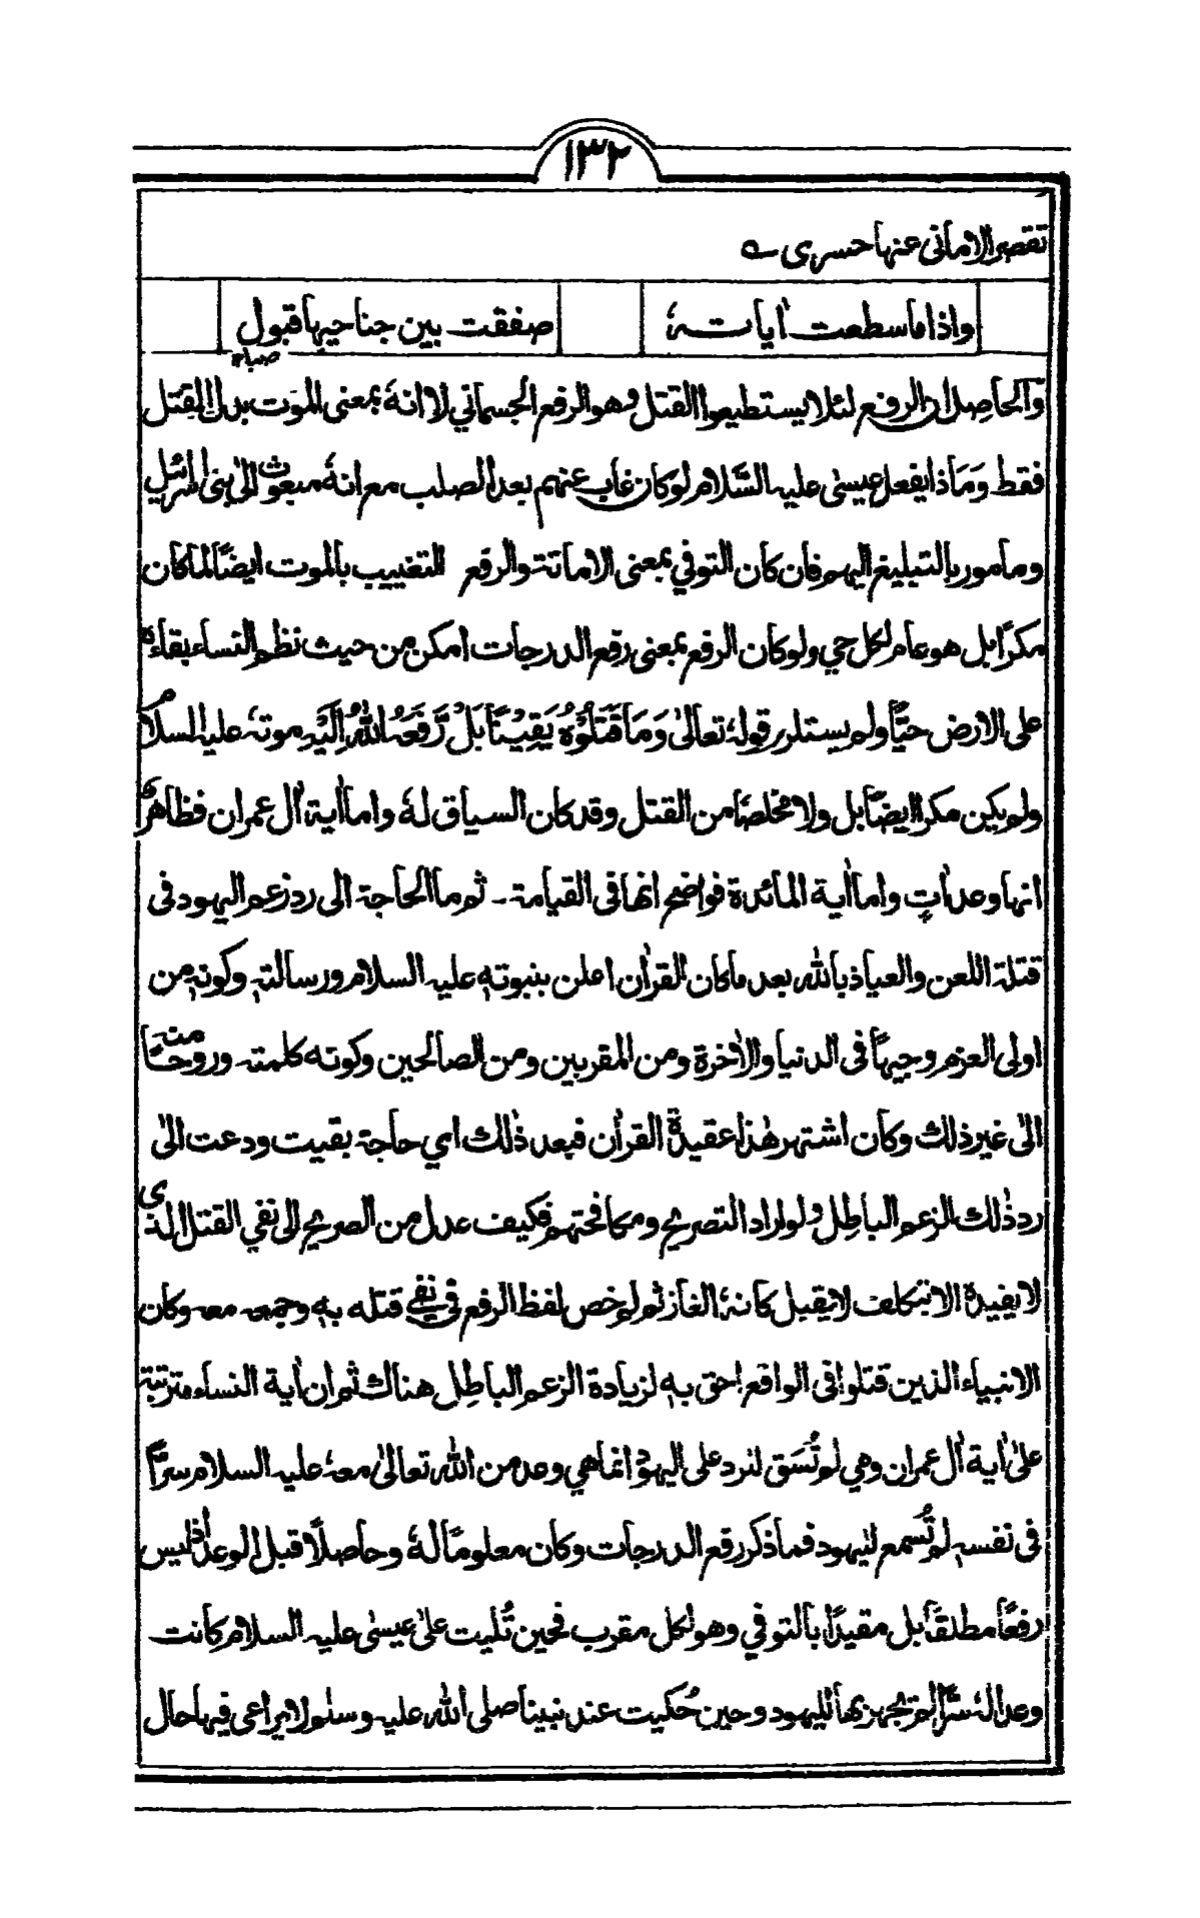 ١٣٢
تقصر الامانی عنها حسری ے
واذا ما سطعت اٰیاتہٗ صفقت بین جناحیها قبول
صباء
وَالحاصِل ان الرفع لئلا یستطیعوا القتل وهو الرفع الجسمانی لا انهٗ بمعنی الموَت بدل القتل
فقط وَمَاذا یفعل عیسٰی علیہ السَّلام لوکان غاب عنهم بعد الصلب مع انهٗ مبعوث الیٰ بنی اسرائیل
ومامور بالتبلیغ الیهم فان کان التوفی بمعنی الاماتة والرفع التغییب بالموت ایضًا لما کان
مکرًا بل هو عام لکل حی ولوکان الرفع بمعنی رفع الدرجات امکن من حیث نظم النساء بقاءہ
علی الارض حیًّا ولم یستلزم قولہٗ تعالیٰ وَمَا قَتَلُوْهُ یَقِیْنًا بَلْ رَّفَعَهُ اللّٰهُ اِلَیْهِ موتهٗ علیہ السلام
ولم یکن مکرا ایضًا بل ولا مخلصًا من القتل وقد کان السیاق لهٗ واما اٰیة اٰل عمران فظاهرٌ
انها وعداتٍ واما اٰیة المائدة فواضح انها فی القیامة ۔ ثم ما الحاجة الی رد زعم الیهود فی
قتلة اللعن والعیاذ باللّٰه بعد ما کان القراٰن اعلن بنبوتهٖ علیہ السلام ورسالتہٖ وکونہٖ من
اولی العزم وجیهًا فی الدنیا والاٰخرة ومن المقربین ومن الصالحین وکونه کلمتہ وروحًا منہ
الیٰ غیر ذلك وکان اشتهر هٰذا عقیدة القراٰن فبعد ذٰلك ای حاجة بقیت ودعت الیٰ
رد ذٰلك الزعم الباطل ولو اراد التصریح ومکافحتهم فکیف عدل من الصریح الی نفی القتل الذی
لا یفیدہ الا بتکلف لا یقبل کانهٗ الغاز ثم لم خص لفظ الرفع فی نفی قتله بهٖ وجمعہ معہ وکان
الانبیاء الذین قتلوا فی الواقع احق بهٖ لزیادة الزعم الباطل هناك ثم ان اٰیة النساء مترتبة
علیٰ اٰیة اٰل عمران وهی لم تُسَق لترد علی الیهود انما هی وعد من اللّٰه تعالیٰ معهٗ علیہ السلام سرًّا
فی نفسہٖ لم تُسمع للیهود فما ذکر رفع الدرجات وکان معلومًا لهٗ وحاصلًا قبل الوعد اذ لیس
رفعًا مطلقًا بل مقیدًا بالتوفی وهو لکل مقرب فحین تُلیت علیٰ عیسٰی علیہ السلام کانت
وعدا لهٗ سرًّا لم تجهر بها للیهود وحین حُکیت عند نبینا صلی اللّٰه علیہ وسلم لا یراعی فیها حال